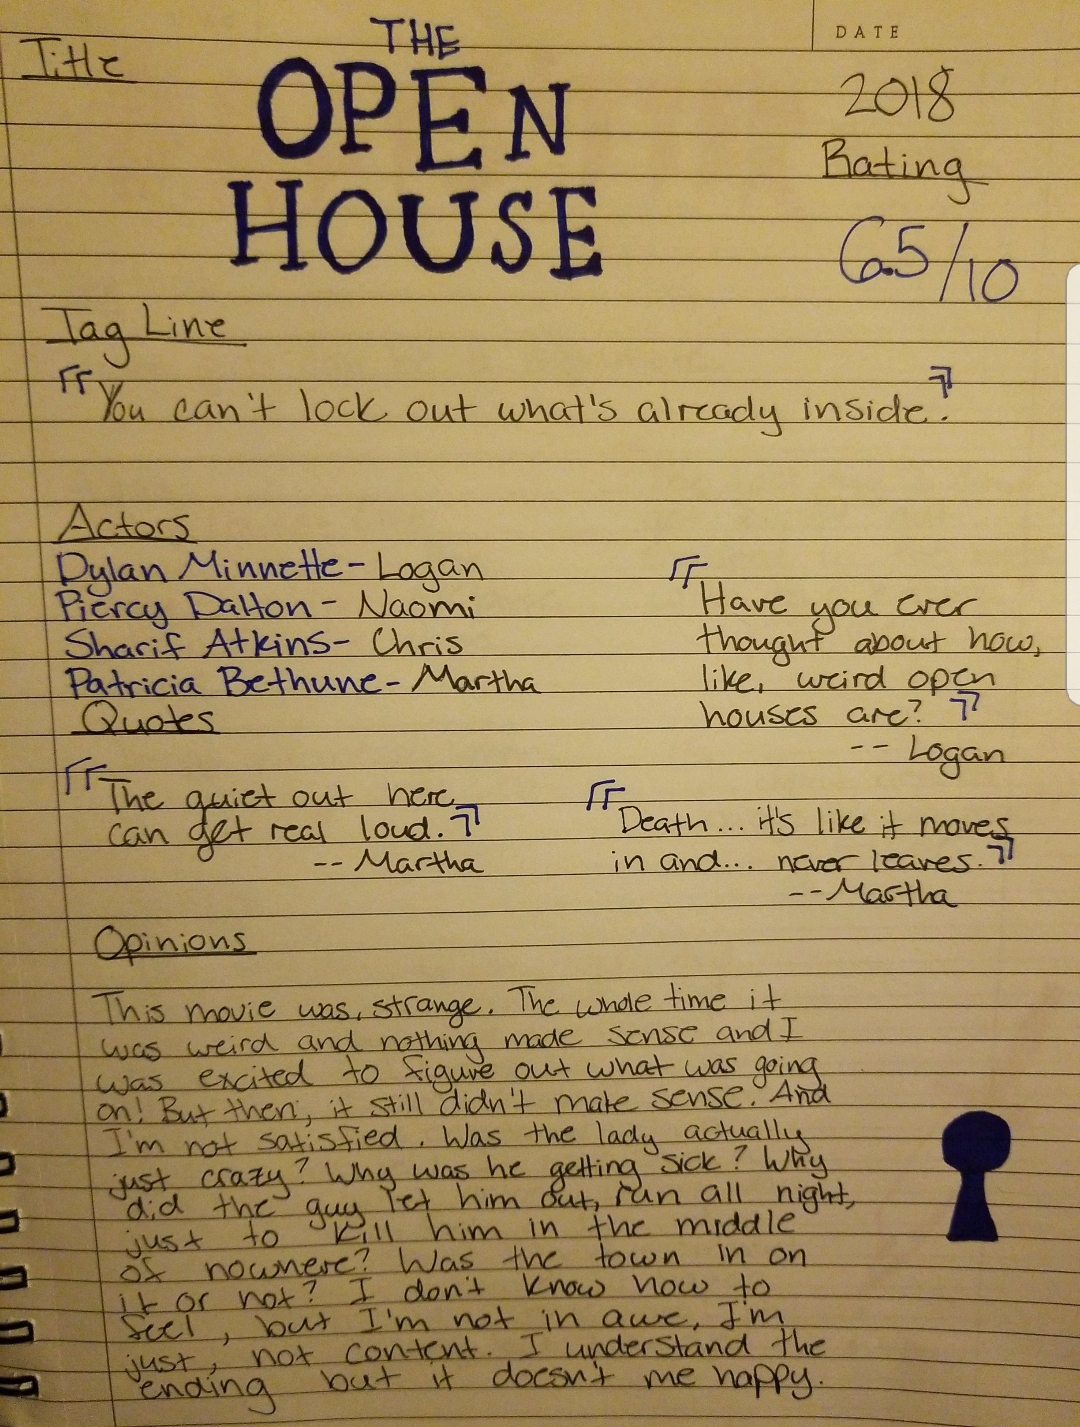 Title
THE
OPEN
HOUSE
DATE
2018
Rating
6.5/10
Tag Line
"You can't lock out what's already inside."
Actors
Dylan Minnette - Logan
Piercy Dalton - Naomi
Sharif Atkins - Chris
Patricia Bethune - Martha
"Have you ever
thought about how,
like, weird open
houses are?"
-- Logan
Quotes
"The quiet out here
can get real loud."
-- Martha
"Death... it's like it moves
in and... never leaves."
-- Martha
Opinions
This movie was, strange. The whole time it
was weird and nothing made sense and I
was excited to figure out what was going
on! But then, it still didn't make sense. And
I'm not satisfied. Was the lady actually
just crazy? Why was he getting sick? Why
did the guy let him out, run all night,
just to kill him in the middle
of nowhere? Was the town in on
it or not? I don't know how to
feel, but I'm not in awe, I'm
just, not content. I understand the
ending but it doesn't me happy.